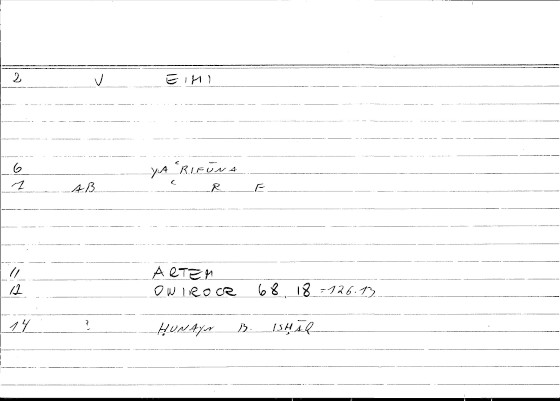 2 V EIMI
6 YAʿRIFŪNA
7 AB ʿ R F
11 ARTEM
12 ONIROCR 68, 18 = 126.13
14 ? ḤUNAYN B. ISḤĀQ